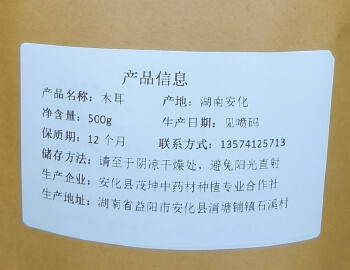 产品信息
产品名称：木耳 产地：湖南安化
净含量：500g 生产日期：见喷码
保质期：12个月 联系方式：13574125713
储存方法：请至于阴凉干燥处，避免阳光直射
生产企业：安化县茂坤中药材种植专业合作社
生产地址：湖南省益阳市安化县滔塘铺镇石溪村